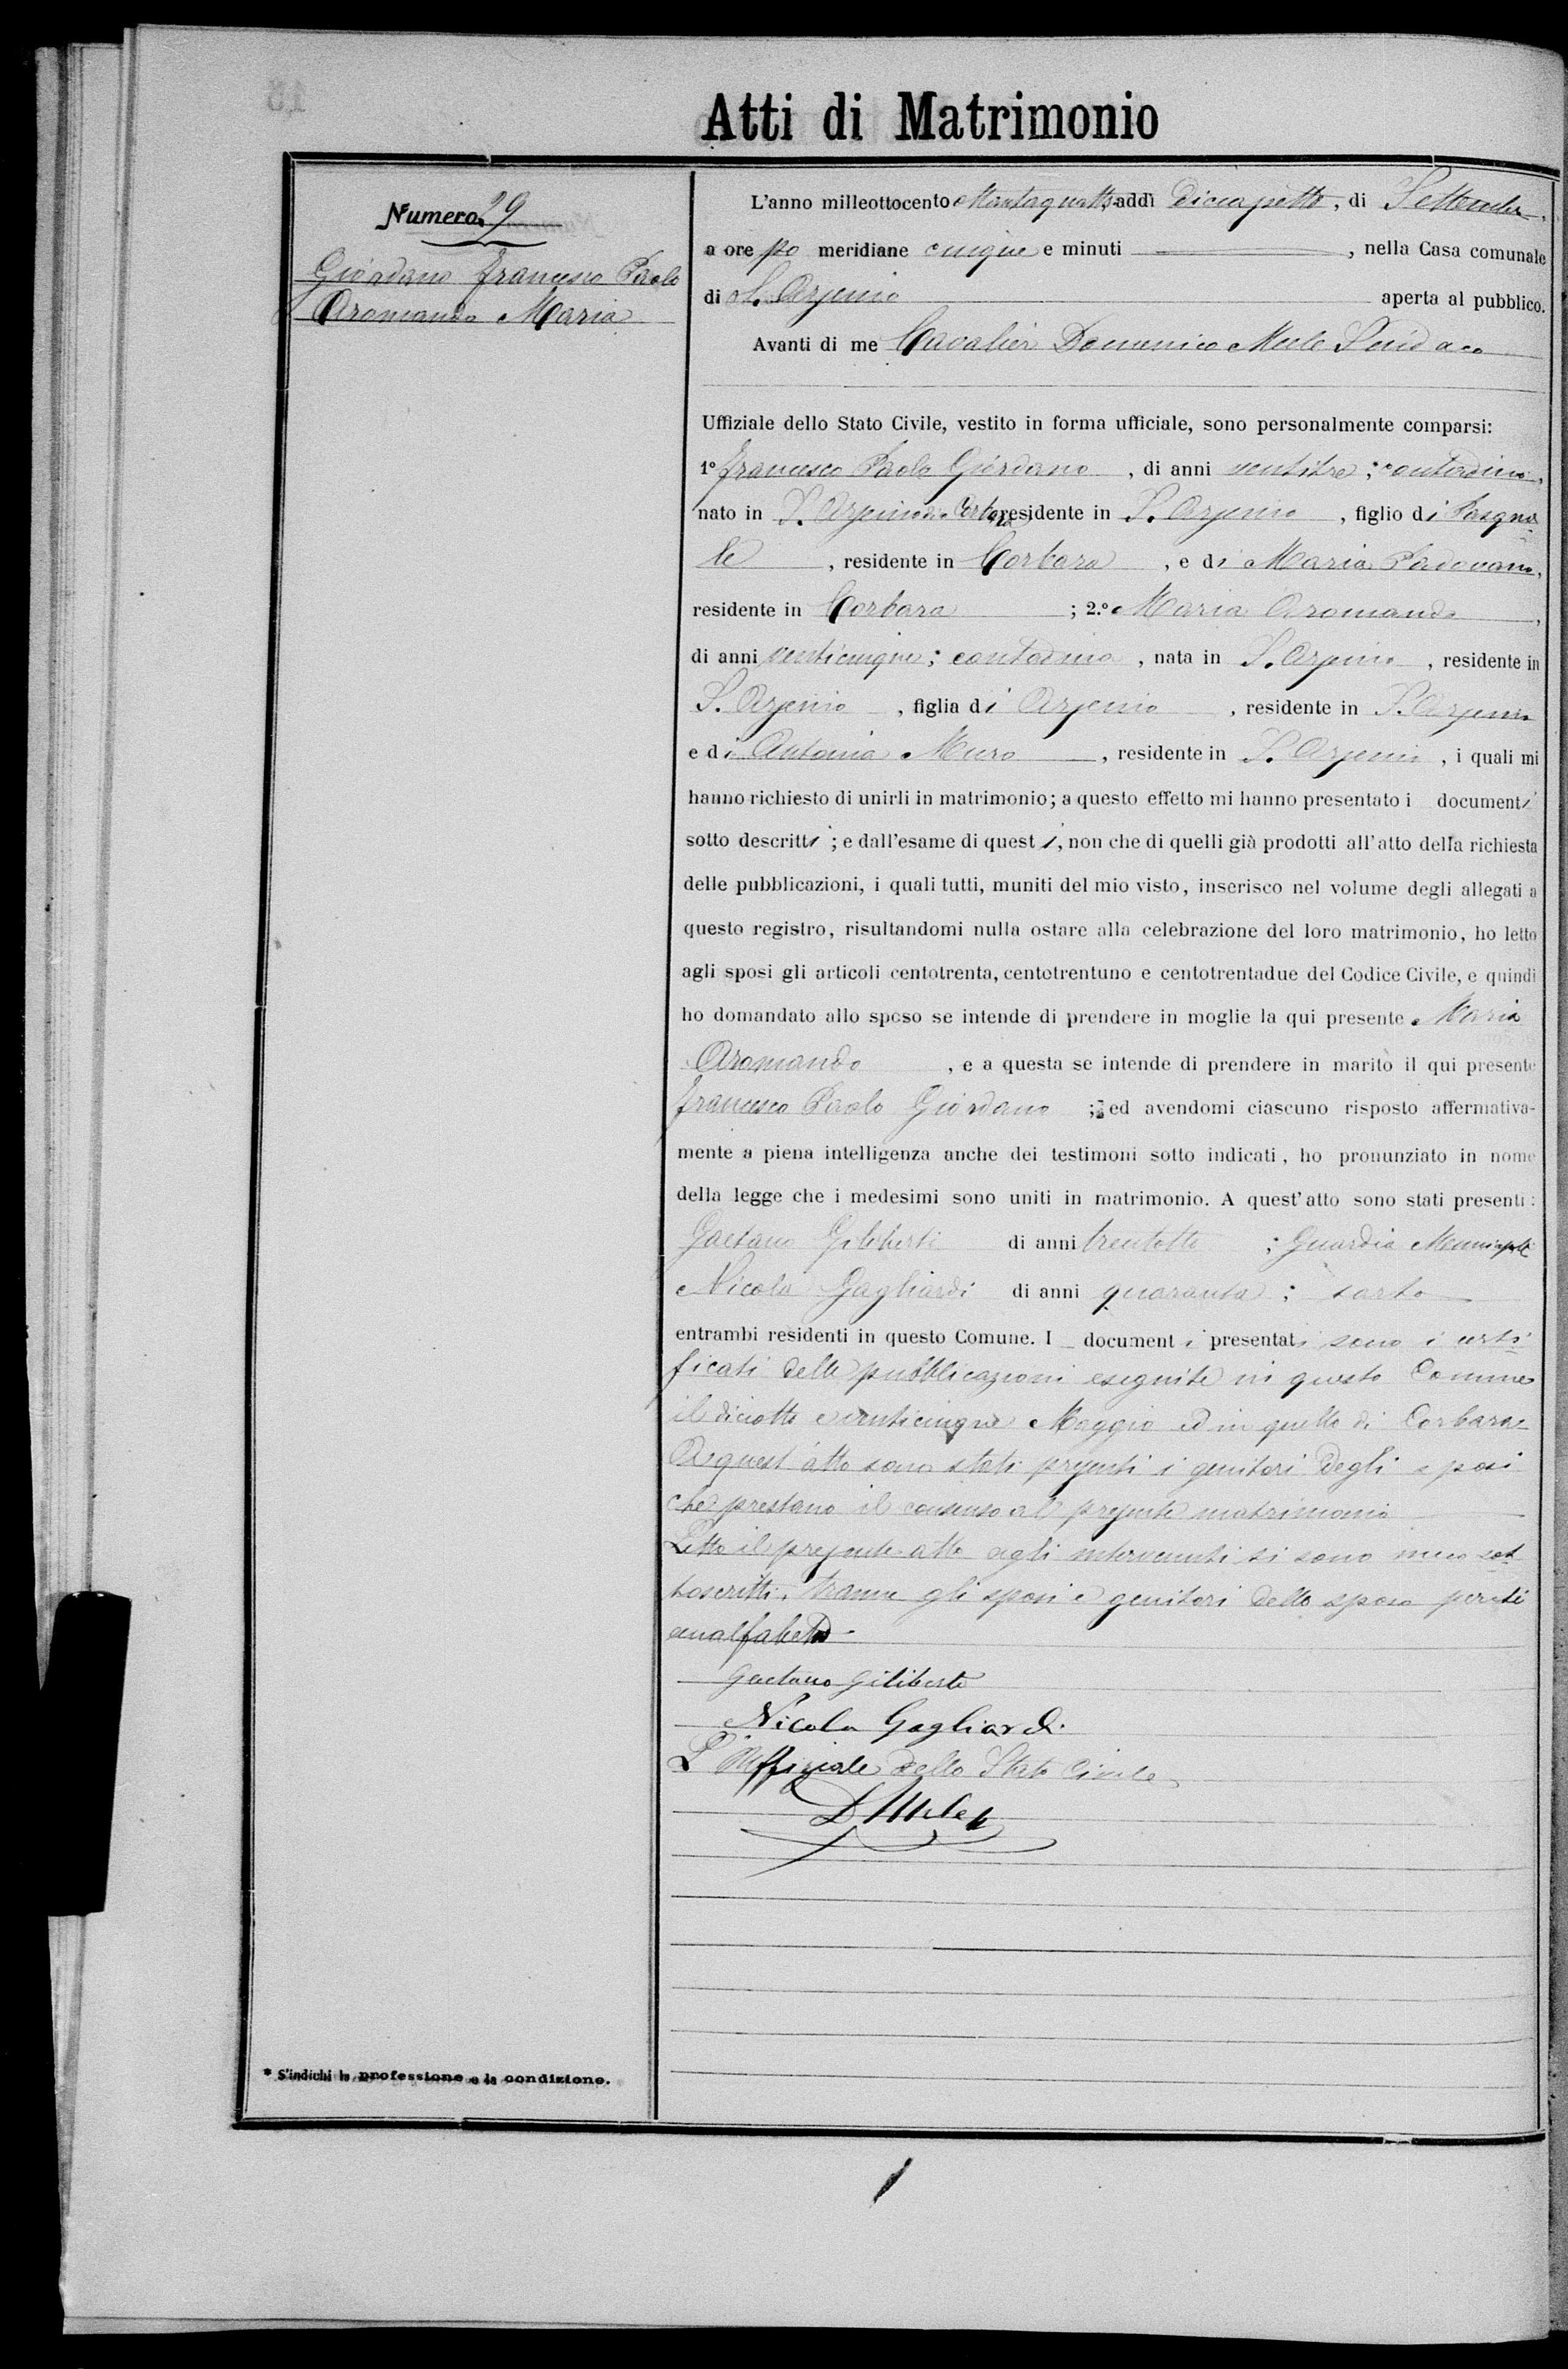 Atti di Matrimonio
Numero 29
Giordano Francesco Paolo
Aromando Maria
L'anno milleottocento ottantaquattro, addì Diciassette, di Settembre,
a ore po meridiane cinque e minuti , nella Casa comunale
di S. Arsenio aperta al pubblico.
Avanti di me Cavalier Domenico Mele Sindaco
Uffiziale dello Stato Civile, vestito in forma ufficiale, sono personalmente comparsi:
1º Francesco Paolo Giordano , di anni ventitre ; contadino,
nato in Corbara residente in S. Arsenio , figlio di Pasqua
le , residente in Corbara , e di Maria Padovano,
residente in Corbara ; 2.º Maria Aromando ,
di anni venticinque ; contadina , nata in S. Arsenio , residente in
S. Arsenio , figlia di Arsenio , residente in S. Arsenio
e di Antonia Muro , residente in S. Arsenio , i quali mi
hanno richiesto di unirli in matrimonio; a questo effetto mi hanno presentato i documenti
sotto descritti ; e dall'esame di questi, non che di quelli già prodotti all'atto della richiesta
delle pubblicazioni, i quali tutti, muniti del mio visto, inserisco nel volume degli allegati a
questo registro, risultandomi nulla ostare alla celebrazione del loro matrimonio, ho letto
agli sposi gli articoli centotrenta, centotrentuno e centotrentadue del Codice Civile, e quindi
ho domandato allo sposo se intende di prendere in moglie la qui presente Maria
Aromando , e a questa se intende di prendere in marito il qui presente
Francesco Paolo Giordano ; ed avendomi ciascuno risposto affermativa-
mente a piena intelligenza anche dei testimoni sotto indicati, ho pronunziato in nome
della legge che i medesimi sono uniti in matrimonio. A quest'atto sono stati presenti:
Gaetano Giliberti di anni trentotto ; Guardia Municipale
Nicola Gagliardi di anni quaranta ; sarto
entrambi residenti in questo Comune. I documenti presentati sono i certi
ficati delle pubblicazioni eseguite in questo Comune
il diciotto e venticinque Maggio ed in quello di Corbara
A quest'atto sono stati presenti i genitori degli sposi
che prestano il consenso al presente matrimonio
Letto il presente atto agli intervenuti si sono meco sot
toscritti, tranne gli sposi e genitori dello sposo perché
analfabeti
Gaetano Giliberti
Nicola Gagliardi
L'Uffiziale dello Stato Civile
D. Mele
* S'indichi la professione o la condizione.